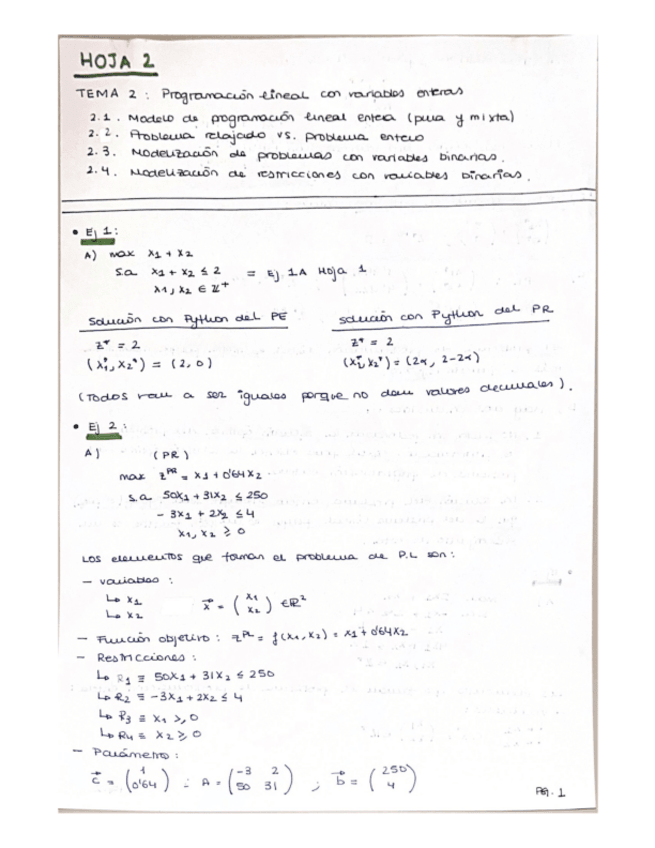 HOJA 2
TEMA 2: Programación lineal con variables enteras
2.1. Modelo de programación lineal entera (pura y mixta)
2.2. Problema relajado vs. problema entero
2.3. Modelización de problemas con variables binarias.
2.4. Modelización de restricciones con variables binarias.
• Ej 1:
A) max x1 + x2
s.a x1 + x2 ≤ 2 = Ej 1A Hoja 1
x1, x2 ∈ Z⁺
Solución con Python del PE
z* = 2
(x1*, x2*) = (2, 0)
solución con Python del PR
z* = 2
(x1*, x2*) = (2α, 2-2α)
(Todos van a ser iguales porque no dan valores decimales).
• Ej 2:
A) (PR)
max z^PR = x1 + 0'64x2
s.a 50x1 + 31x2 ≤ 250
-3x1 + 2x2 ≤ 4
x1, x2 ≥ 0
Los elementos que forman el problema de P.L son:
- variables:
↳ x1
↳ x2
x⃗ = (x1 x2) ∈ R²
- Función objetivo: z^PL = f(x1, x2) = x1 + 0'64x2
- Restricciones:
↳ R1 ≡ 50x1 + 31x2 ≤ 250
↳ R2 ≡ -3x1 + 2x2 ≤ 4
↳ R3 ≡ x1 ≥ 0
↳ R4 ≡ x2 ≥ 0
- Parámetro:
c⃗ = (1 0'64) ; A = (-3 2 50 31) ; b⃗ = (250 4)
Pág. 1